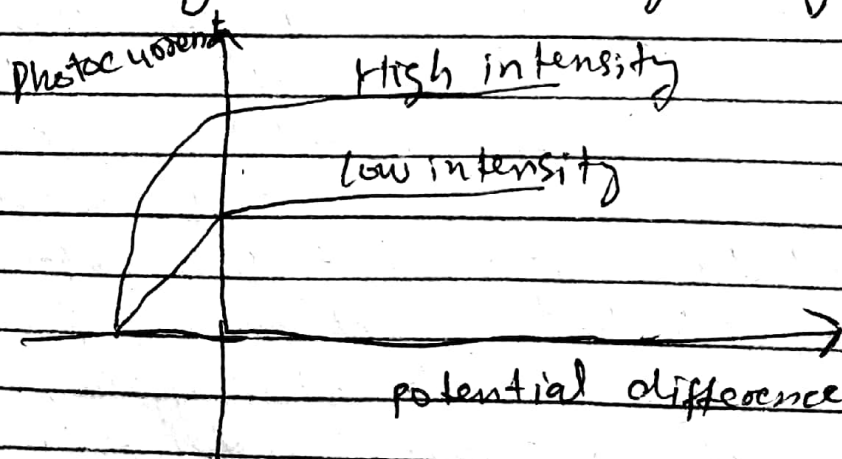 Photocurrent
High intensity
Low intensity
potential difference